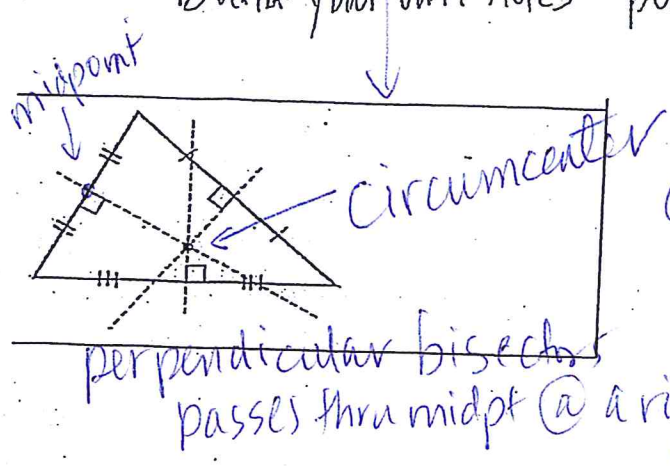 your own notes
midpoint
circumcenter
perpendicular bisectors
passes thru midpt @ a ri